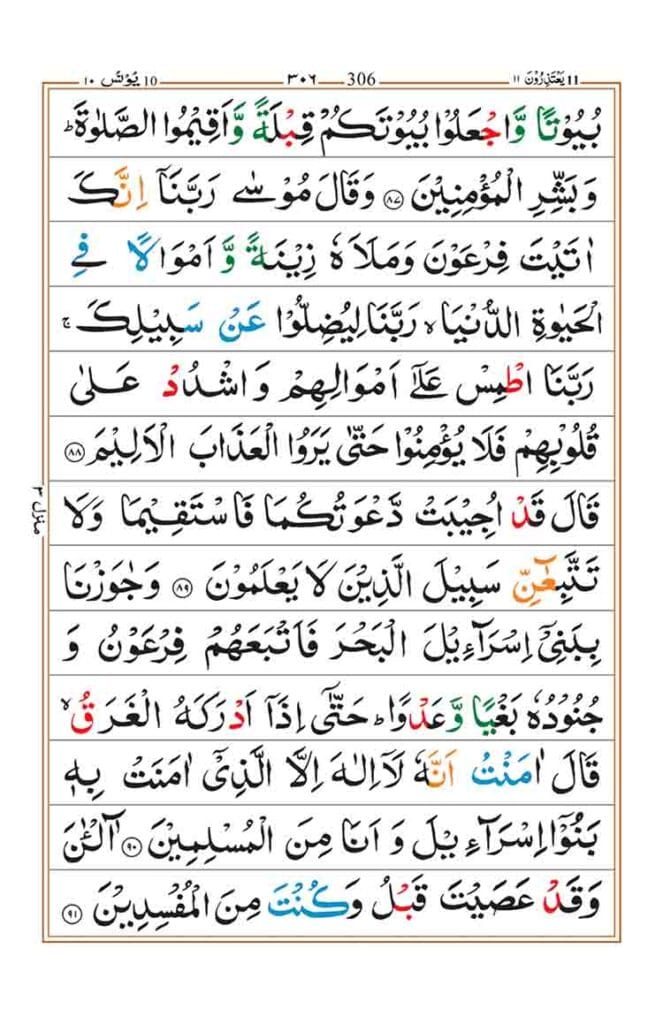 ١٠ يُوْنُس 10 ٣٠٦ 306 يَعْتَذِرُوْنَ ١١ 11
بُيُوْتًا وَّاجْعَلُوْا بُيُوْتَكُمْ قِبْلَةً وَّاَقِيْمُوا الصَّلٰوةَ ؕ
وَبَشِّرِ الْمُؤْمِنِيْنَ ۝٨٧ وَقَالَ مُوْسٰى رَبَّنَاۤ اِنَّكَ
اٰتَيْتَ فِرْعَوْنَ وَمَلَاَهٗ زِيْنَةً وَّاَمْوَالًا فِى
الْحَيٰوةِ الدُّنْيَا ۙ رَبَّنَا لِيُضِلُّوْا عَنْ سَبِيْلِكَ ۚ
رَبَّنَا اطْمِسْ عَلٰٓى اَمْوَالِهِمْ وَاشْدُدْ عَلٰى
قُلُوْبِهِمْ فَلَا يُؤْمِنُوْا حَتّٰى يَرَوُا الْعَذَابَ الْاَلِيْمَ ۝٨٨
قَالَ قَدْ اُجِيْبَتْ دَّعْوَتُكُمَا فَاسْتَقِيْمَا وَلَا
تَتَّبِعٰٓنِّ سَبِيْلَ الَّذِيْنَ لَا يَعْلَمُوْنَ ۝٨٩ وَجٰوَزْنَا
بِبَنِىْۤ اِسْرَآءِيْلَ الْبَحْرَ فَاَتْبَعَهُمْ فِرْعَوْنُ وَ
جُنُوْدُهٗ بَغْيًا وَّعَدْوًا ؕ حَتّٰۤى اِذَاۤ اَدْرَكَهُ الْغَرَقُ ۙ
قَالَ اٰمَنْتُ اَنَّهٗ لَاۤ اِلٰهَ اِلَّا الَّذِىْۤ اٰمَنَتْ بِهٖ
بَنُوْۤا اِسْرَآءِيْلَ وَاَنَا مِنَ الْمُسْلِمِيْنَ ۝٩٠ آٰلْـٰٔنَ
وَقَدْ عَصَيْتَ قَبْلُ وَكُنْتَ مِنَ الْمُفْسِدِيْنَ ۝٩١
منزل ٣